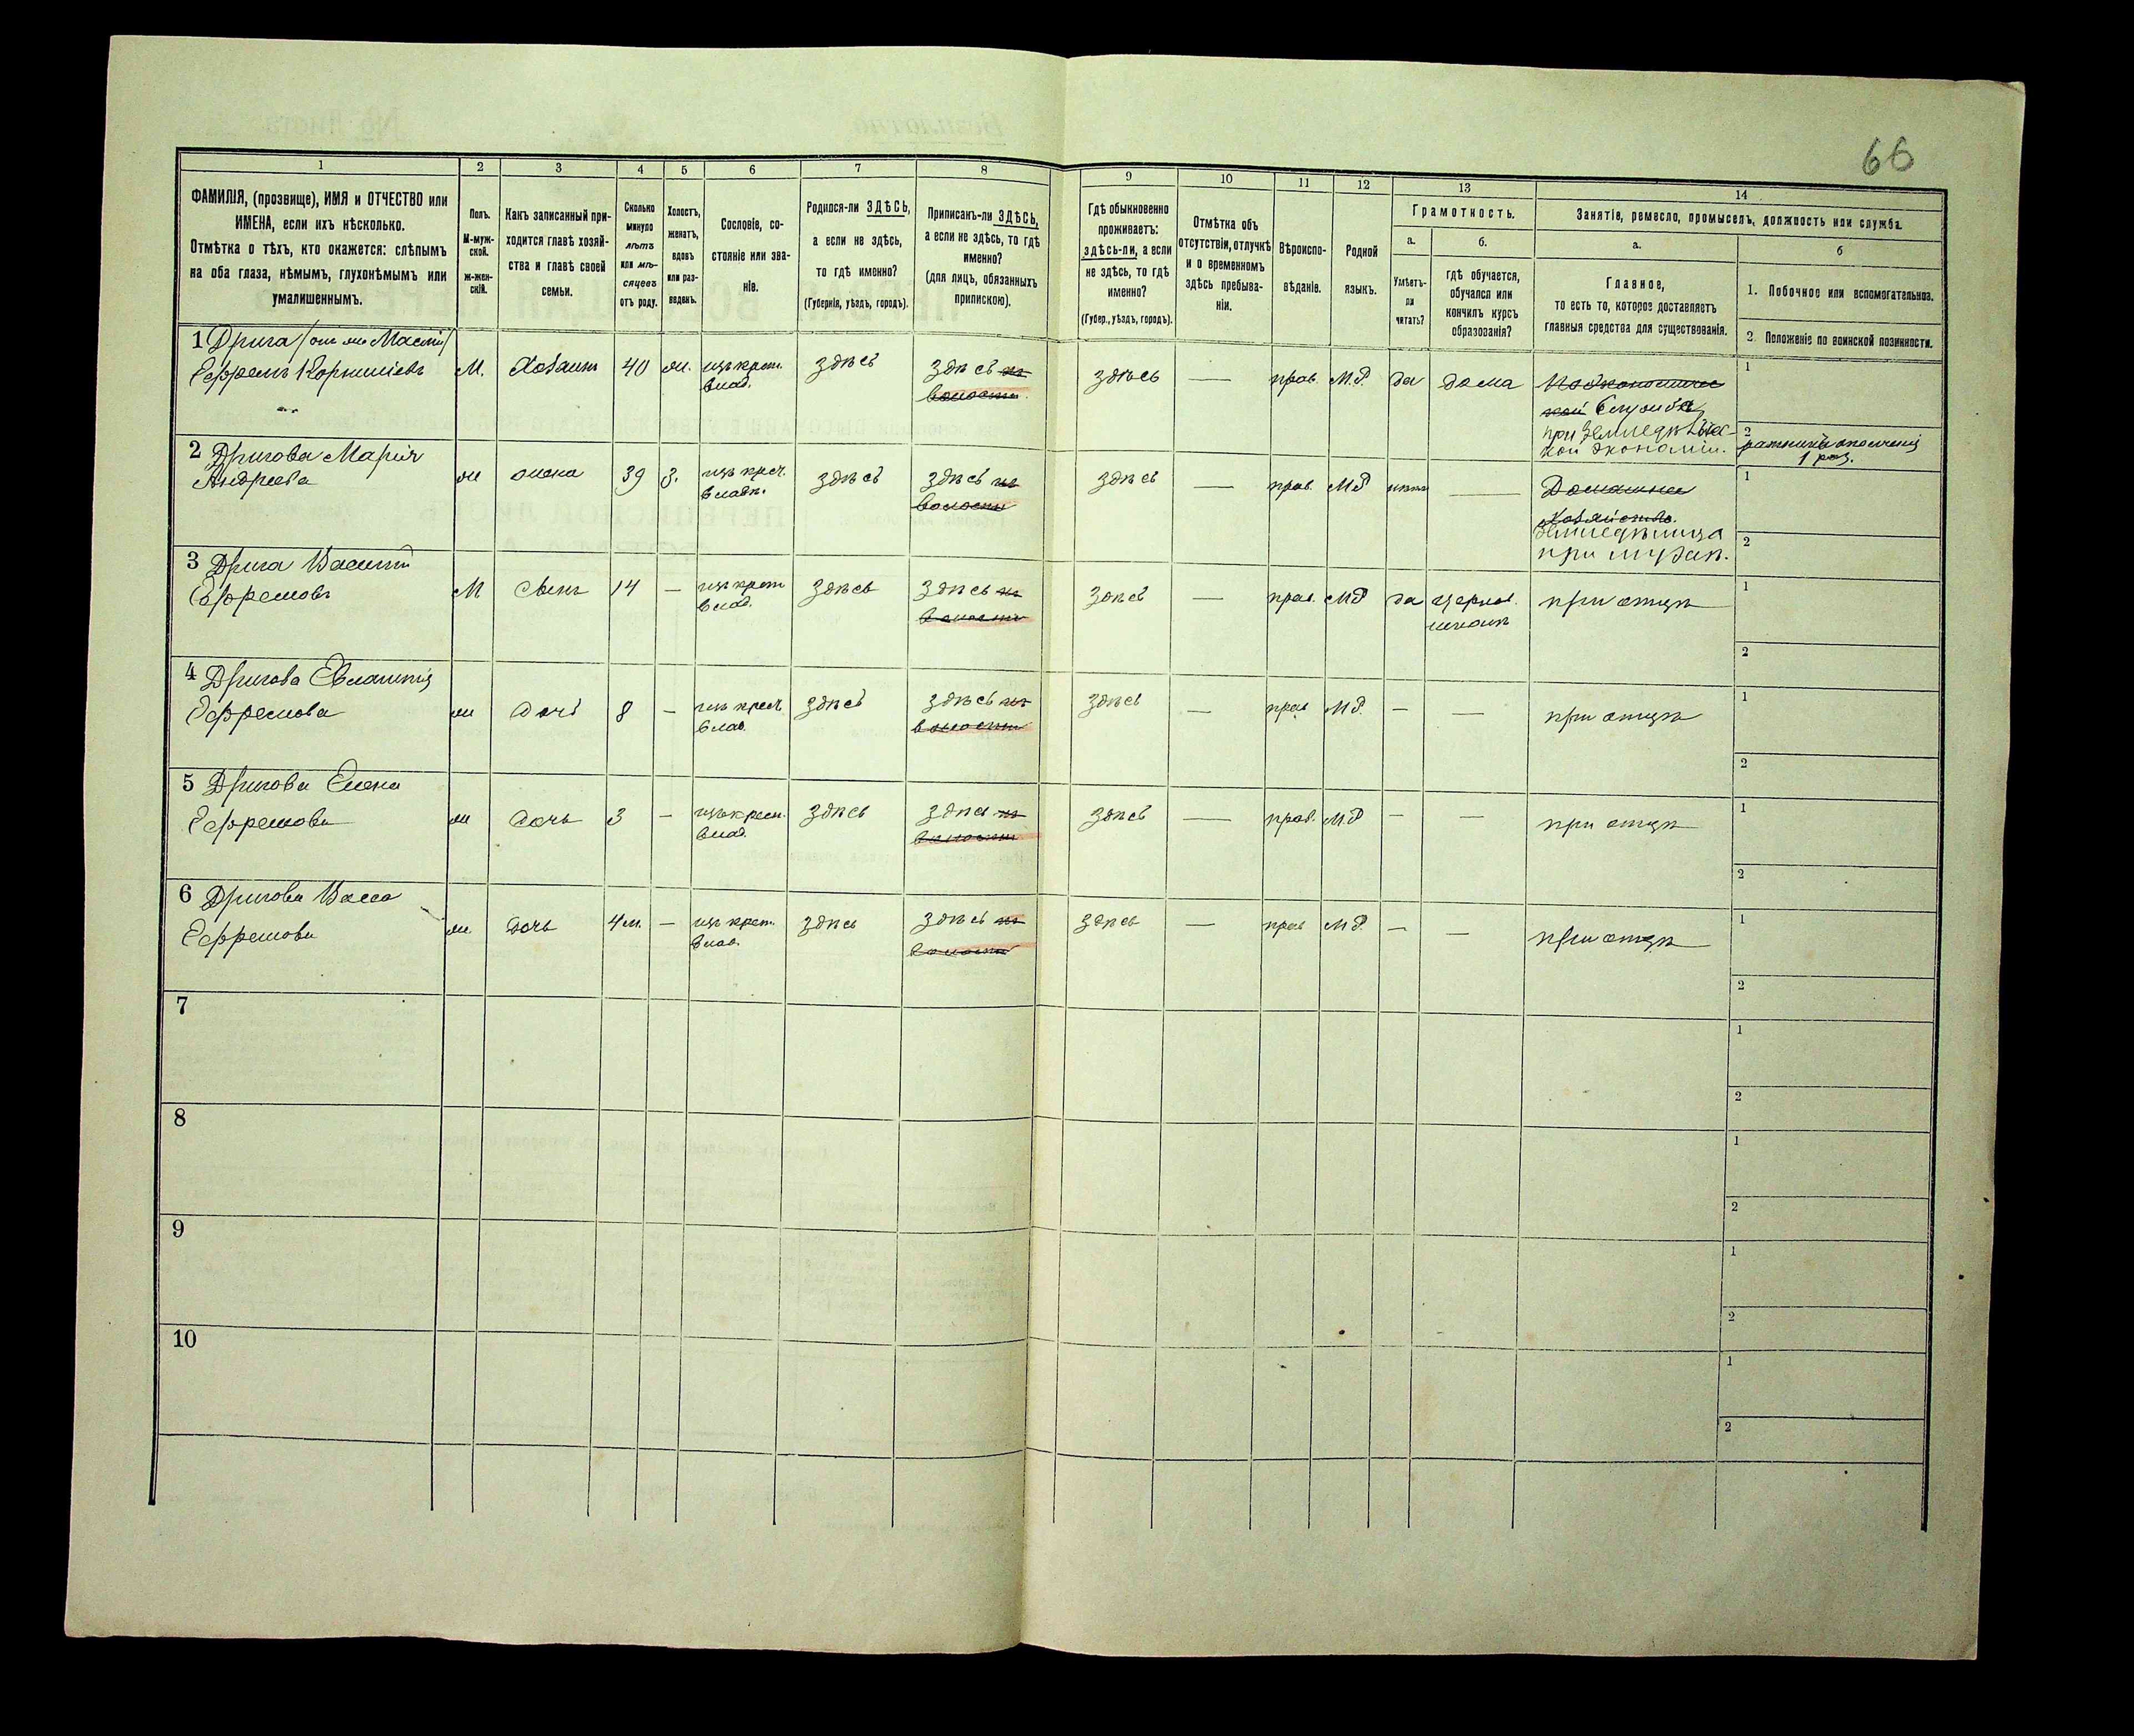 66
1 2 3 4 5 6 7 8 9 10 11 12 13 14
ФАМИЛІЯ, (прозвище), ИМЯ и ОТЧЕСТВО или
ИМЕНА, если ихъ нѣсколько.
Отмѣтка о тѣхъ, кто окажется: слѣпымъ
на оба глаза, нѣмымъ, глухонѣмымъ или
умалишеннымъ.
Полъ.
М-муж-
ской.
ж-жен-
скій.
Какъ записанный при-
ходится главѣ хозяй-
ства и главѣ своей
семьи.
Сколько
минуло
лѣтъ
или мѣ-
сяцевъ
отъ роду.
Холостъ,
женатъ,
вдовъ
или раз-
веденъ.
Сословіе, со-
стояніе или зва-
ніе.
Родился-ли ЗДѢСЬ,
а если не здѣсь,
то гдѣ именно?
(Губернія, уѣздъ, городъ).
Приписанъ-ли ЗДѢСЬ,
а если не здѣсь, то гдѣ
именно?
(для лицъ, обязанныхъ
припискою).
Гдѣ обыкновенно
проживаетъ:
здѣсь-ли, а если
не здѣсь, то гдѣ
именно?
(Губер., уѣздъ, городъ).
Отмѣтка объ
отсутствіи, отлучкѣ
и о временномъ
здѣсь пребыва-
ніи.
Вѣроиспо-
вѣданіе.
Родной
языкъ.
Грамотность.
а.
Умѣетъ-
ли
читать?
б.
гдѣ обучается,
обучался или
кончилъ курсъ
образованія?
Занятіе, ремесло, промыселъ, должность или служба.
а.
Главное,
то есть то, которое доставляетъ
главныя средства для существованія.
б
1. Побочное или вспомогательное.
2. Положеніе по воинской повинности.
1 Дрига
Ефремъ Корнилиевъ
М. Хозаинъ 40 ж. изъ крест.
влад.
здѣсь
здѣсь въ
волости
здѣсь — прав. М.Р. да дома
ской служба
при земледѣльчес-
кой экономіи.
1
2
ратникъ ополченія
1 раз.
2 Дригова Марія
Андреева
ж жена 39 з. изъ крест.
владѣ.
здѣсь
здѣсь въ
волости
здѣсь — прав. МР нѣтъ —
Домашнее
хозяйство.
земледѣлица
при мужѣ.
1
2
3 Дрига Василій
Ефремовъ
М Сынъ 14 — изъ крест
влад.
здѣсь
здѣсь въ
волости
здѣсь — прав. МР да церков.
школѣ
при отцѣ
1
2
4 Дригова
Ефремова
ж дочь 8 — изъ крест.
влад.
здѣсь
здѣсь въ
волости
здѣсь — прав МР. — — при отцѣ
1
2
5 Дригова Елена
Ефремова
ж дочь 3 — изъ крест.
влад.
здѣсь
здѣсь въ
волости
здѣсь — прав. МР — — при отцѣ
1
2
6 Дригова Васса
Ефремова
ж. дочь 4 м. — изъ крест.
влад.
здѣсь
здѣсь въ
волости
здѣсь — прав МР. — — при отцѣ
1
2
7
1
2
8
1
2
9
1
2
10
1
2